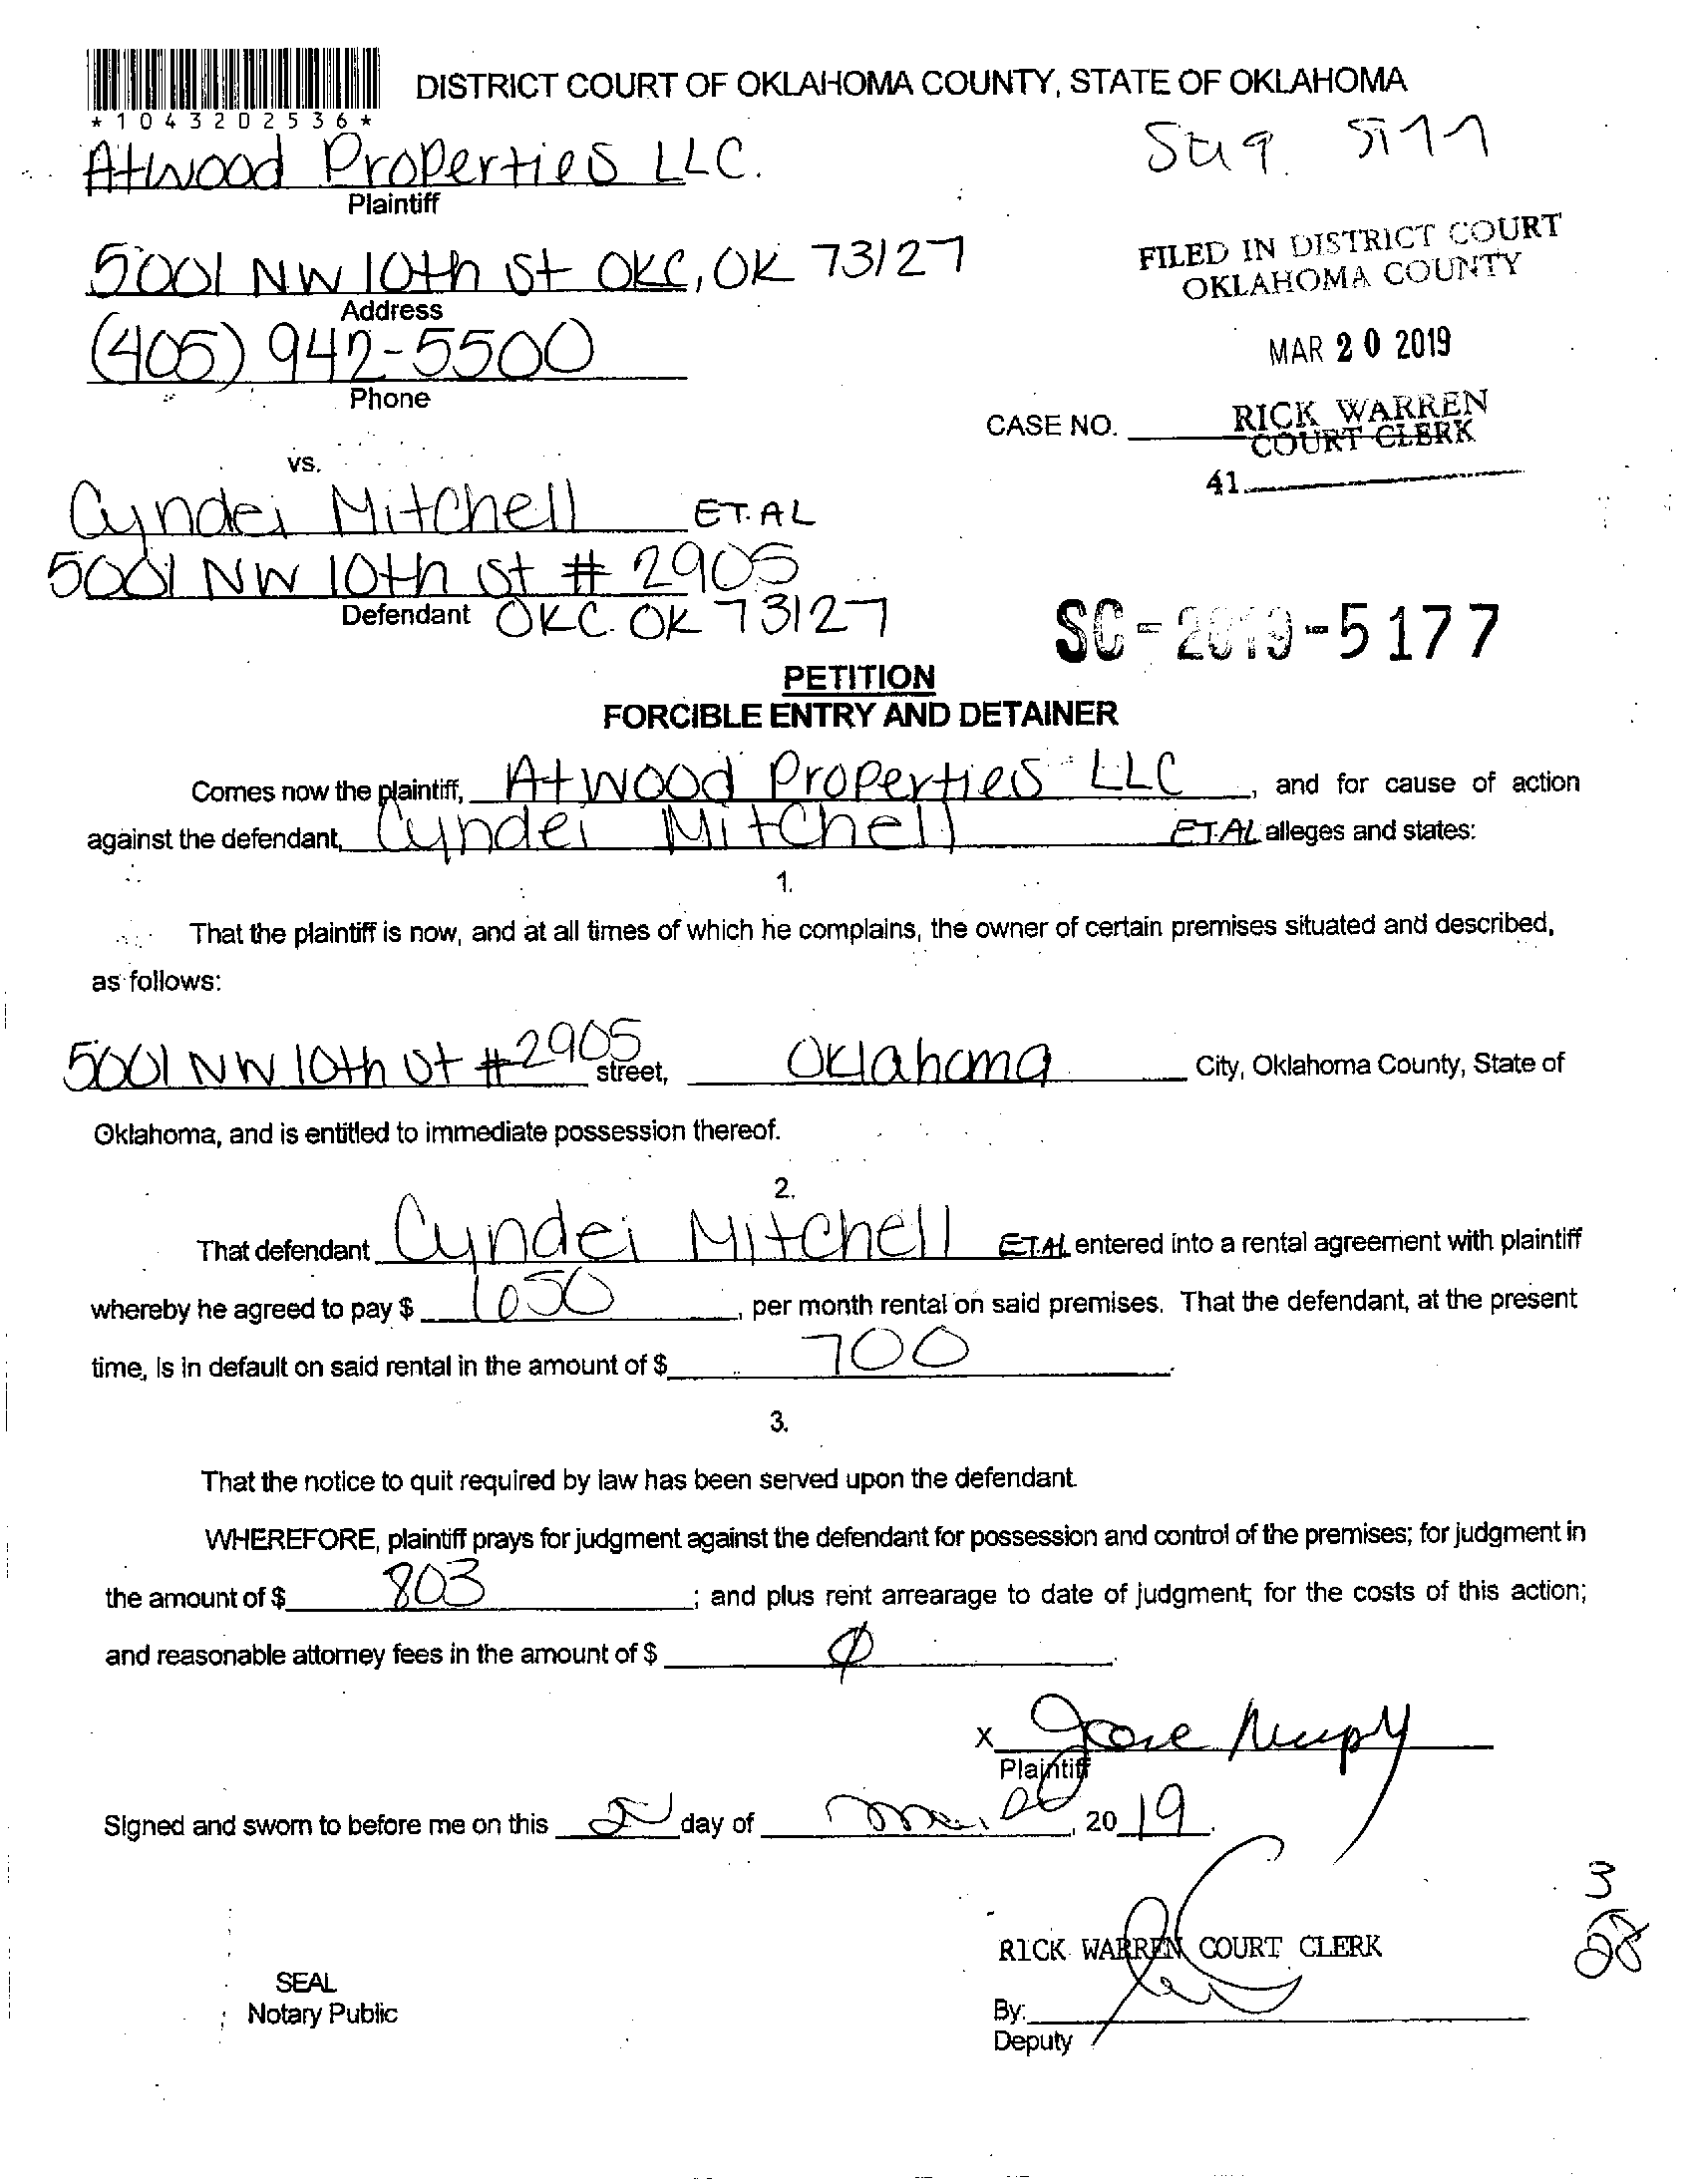 *1043202536*
DISTRICT COURT OF OKLAHOMA COUNTY, STATE OF OKLAHOMA
Atwood Properties LLC.
Plaintiff
5001 NW 10th St OKC, OK 73127
Address
(405) 942-5500
Phone
FILED IN DISTRICT COURT
OKLAHOMA COUNTY
MAR 20 2019
RICK WARREN
COURT CLERK
41
CASE NO.
vs.
Cyndei Mitchell ET.AL
5001 NW 10th St # 2905
Defendant OKC. OK 73127
SC-2019-5177
PETITION
FORCIBLE ENTRY AND DETAINER
Comes now the plaintiff, Atwood Properties LLC, and for cause of action
against the defendant, Cyndei Mitchell ET.AL alleges and states:
1.
That the plaintiff is now, and at all times of which he complains, the owner of certain premises situated and described,
as follows:
5001 NW 10th St #2905 street, Oklahoma City, Oklahoma County, State of
Oklahoma, and is entitled to immediate possession thereof.
2.
That defendant Cyndei Mitchell ET.AL entered into a rental agreement with plaintiff
whereby he agreed to pay $ 650, per month rental on said premises. That the defendant, at the present
time, is in default on said rental in the amount of $ 700.
3.
That the notice to quit required by law has been served upon the defendant.
WHEREFORE, plaintiff prays for judgment against the defendant for possession and control of the premises; for judgment in
the amount of $ 803; and plus rent arrearage to date of judgment; for the costs of this action;
and reasonable attorney fees in the amount of $ 0.
X
Plaintiff
Signed and sworn to before me on this day of , 2019.
RICK WARREN COURT CLERK
SEAL
Notary Public
By:
Deputy